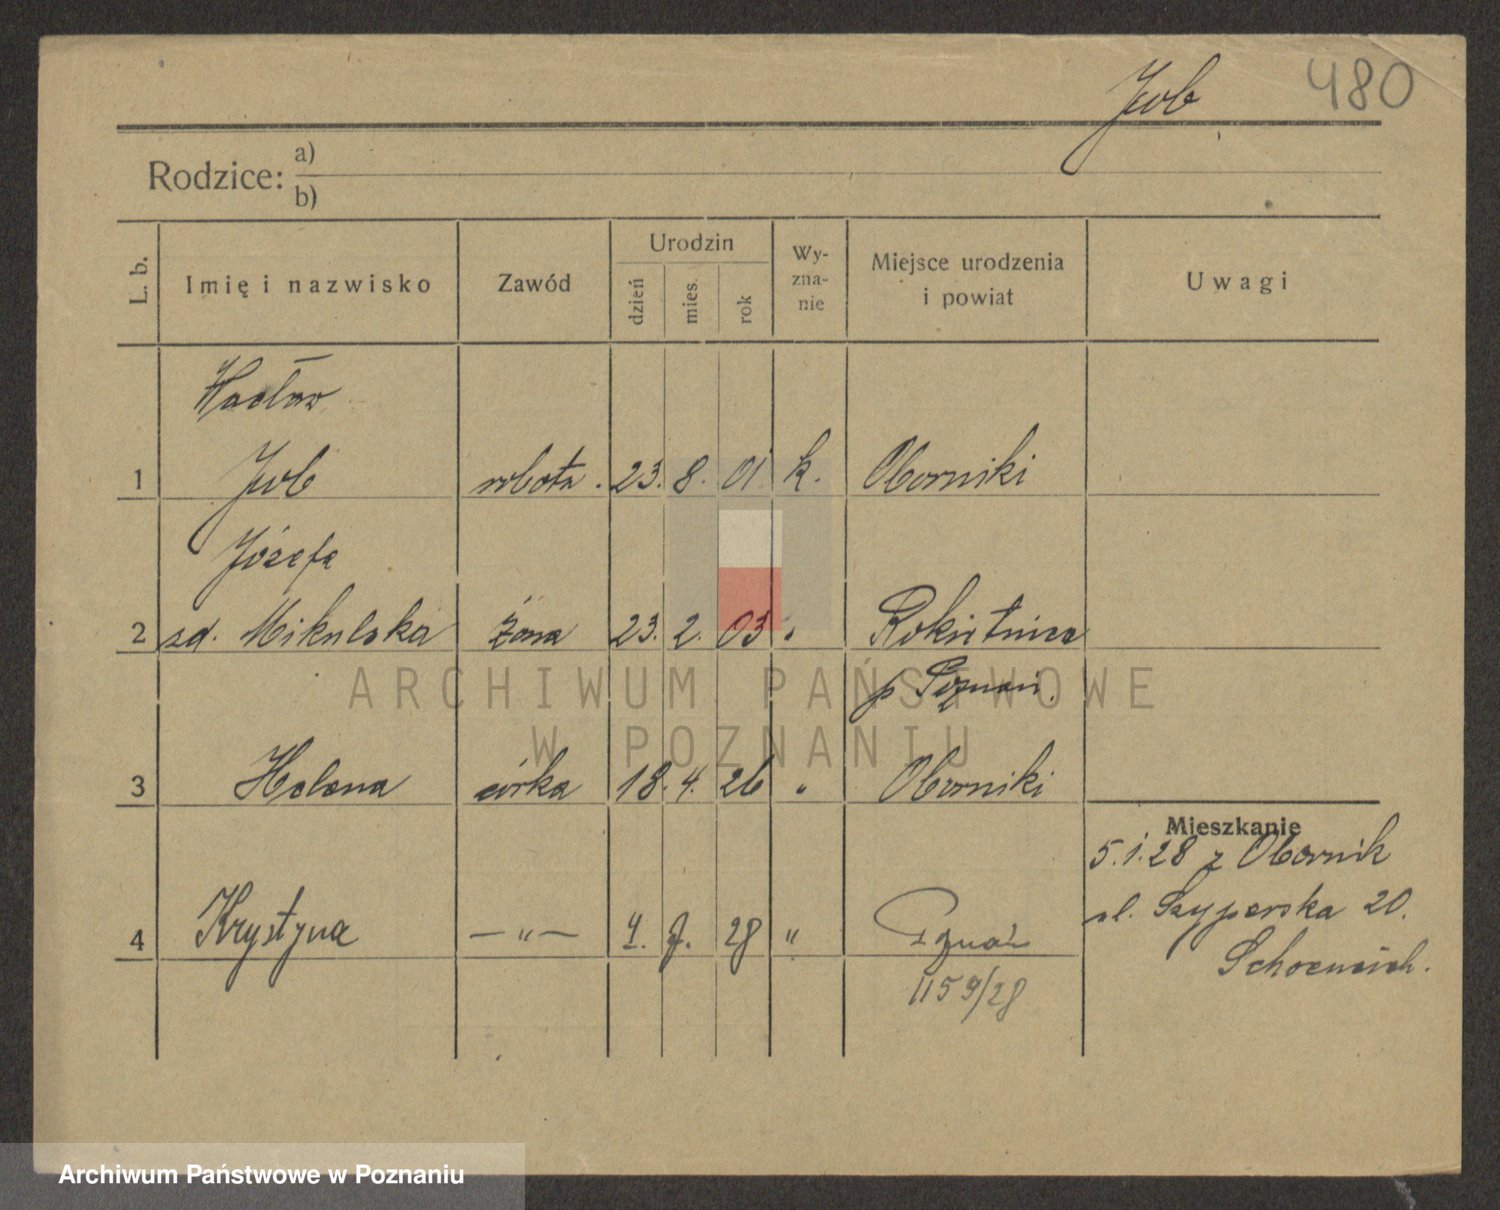 Job 480
Rodzice: a)
b)
L. b. Imię i nazwisko Zawód Urodzin dzień mies. rok Wy-zna-nie Miejsce urodzenia i powiat Uwagi
Wacław
1 Job robotn. 23. 8. 01 k. Oborniki
Józefa
2 zd. Mikulska żona 23. 2. 03 " Rokietnica
p Poznań.
3 Helena córka 18. 4. 26 " Oborniki
Mieszkanie
5.1.28 z Obornik
ul. Szyperska 20.
4 Krystyna — " — 4. 7. 28 " Poznań
1159/28
ARCHIWUM PAŃSTWOWE
W POZNANIU
Archiwum Państwowe w Poznaniu